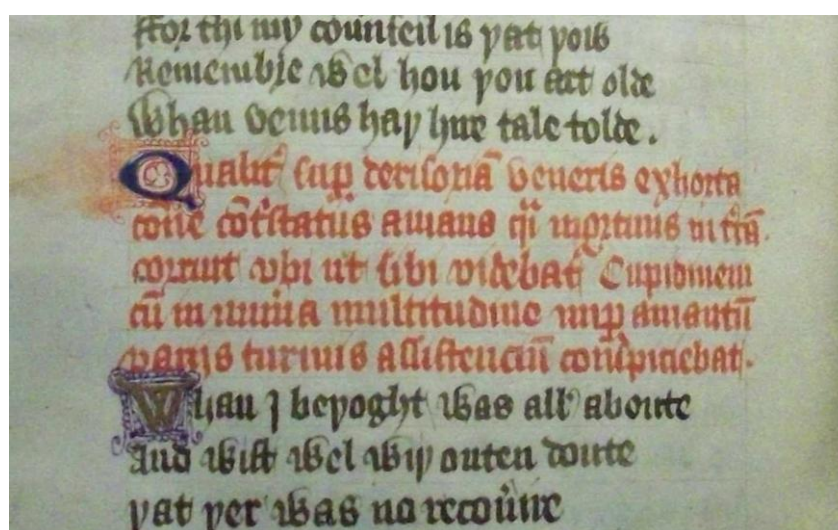 ffor thi my counseil is þat þow
Remembre wel hou þou art olde
Whan venus haþ hire tale tolde.
Qualit̉ suꝑ derisoriā veneris exhorta
cōne cōt̉status amans qͥ mortuus in t̉rā
corruit vbi ut sibi videbat᷑ Cupidinem
cū in nūia multitudine nuꝑ amantū
varijs turmis assistenciū conspiciebat.
Whan I beþoght was all aboute
And wist wel wiþ outen doute
þat þer was no recoūre